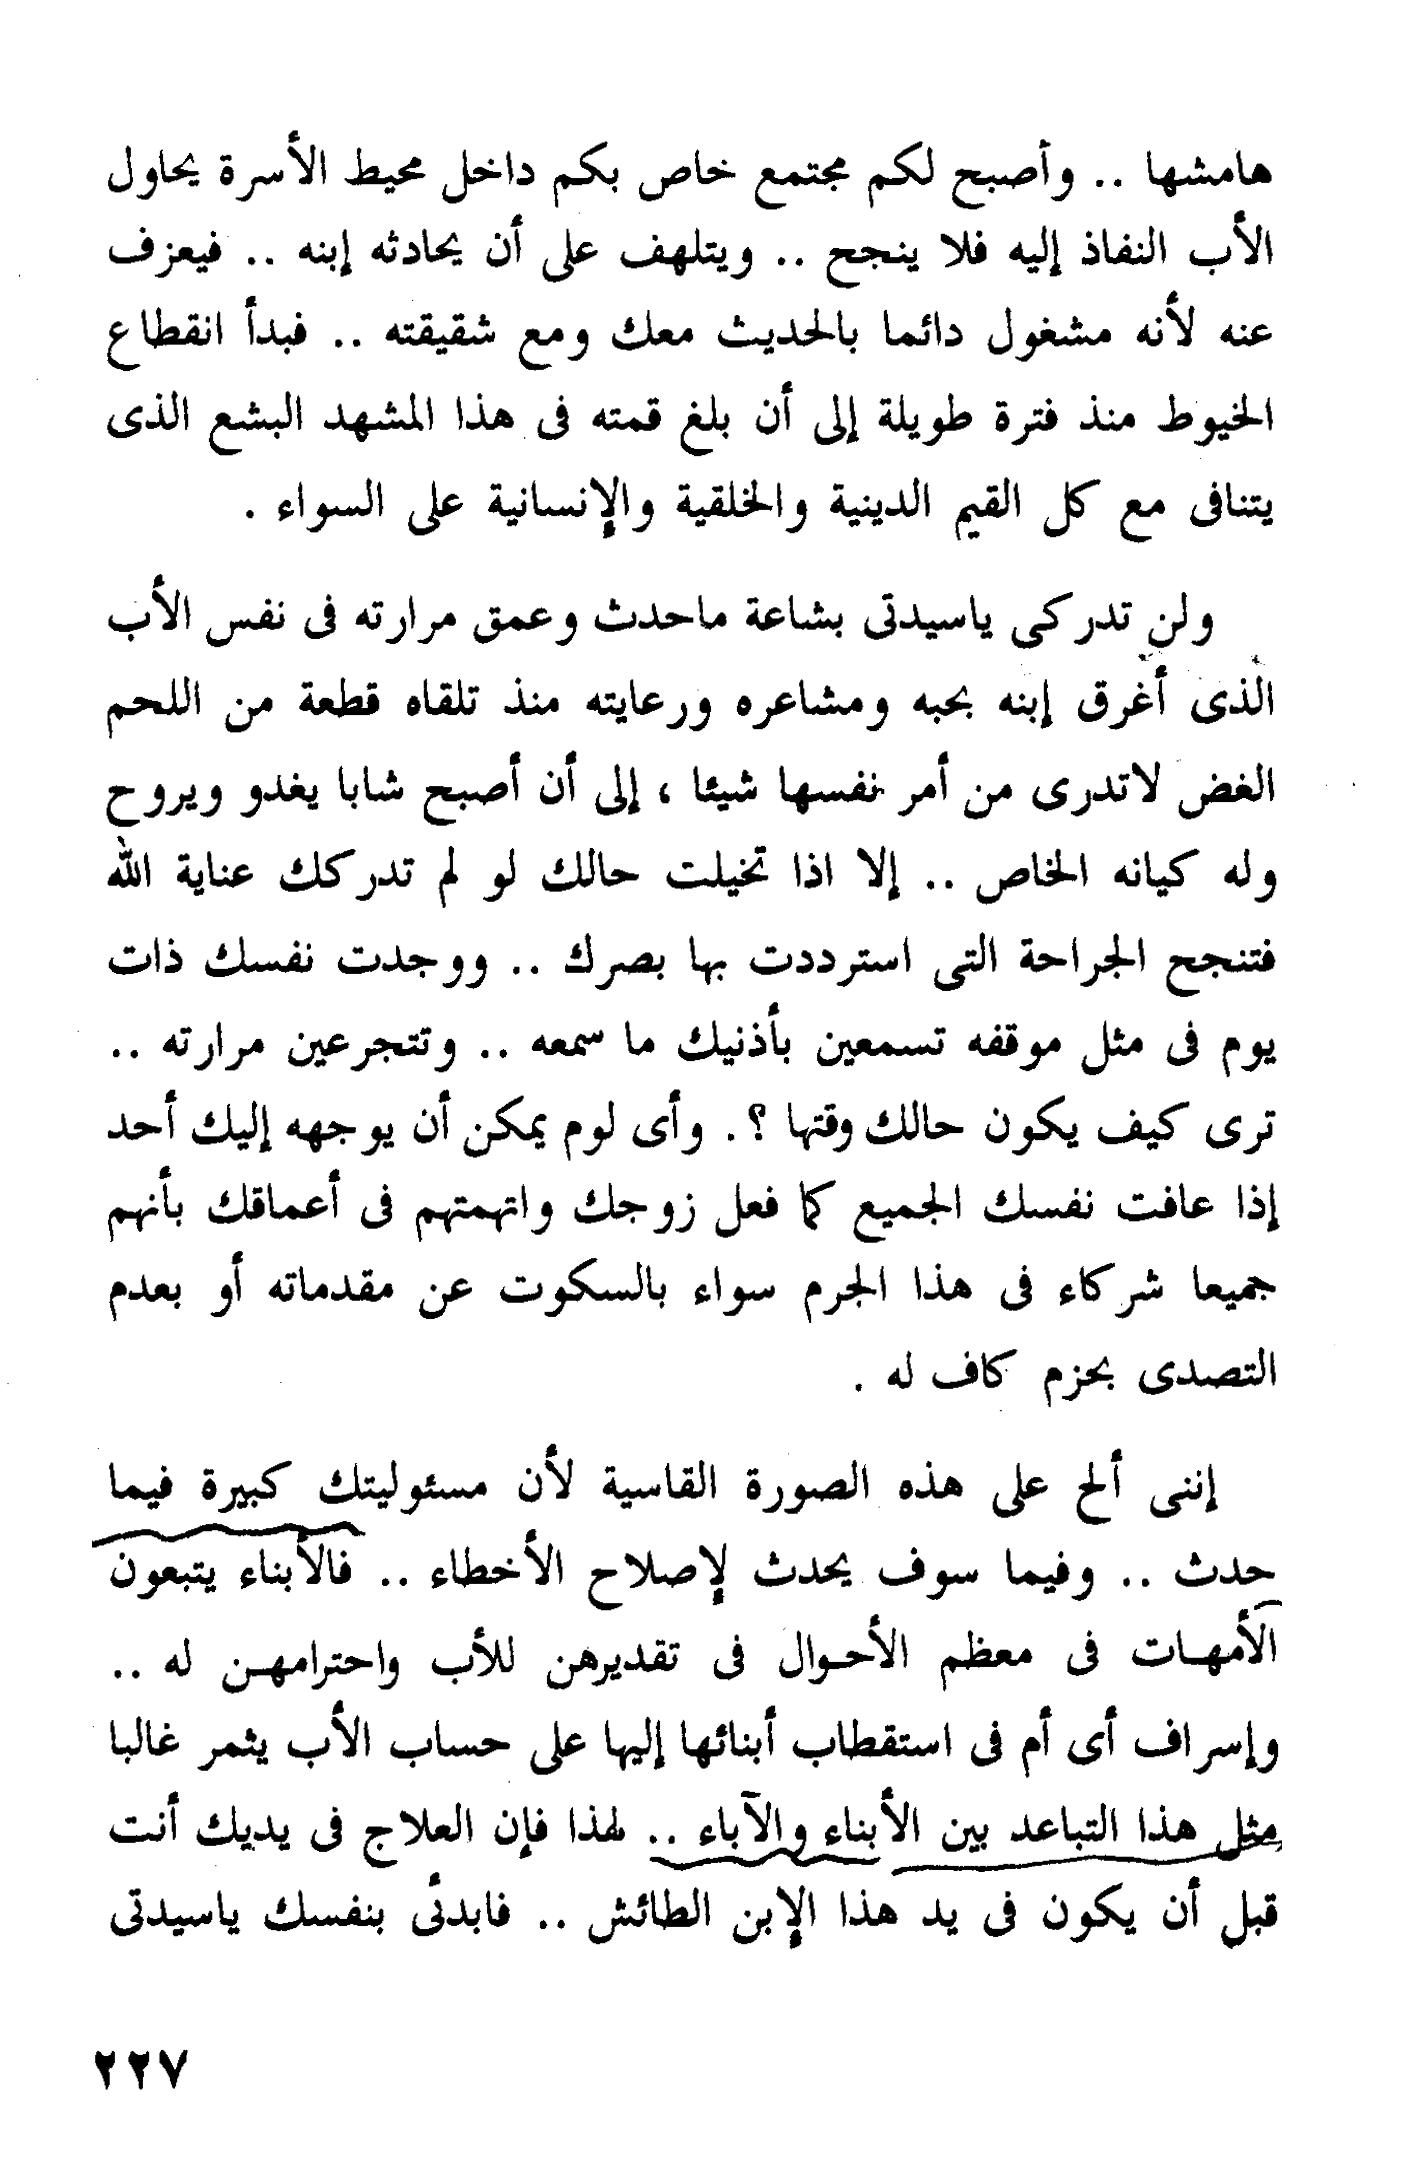 هامشها .. وأصبح لكم مجتمع خاص بكم داخل محيط الأسرة يحاول
الأب النفاذ إليه فلا ينجح .. ويتلهف على أن يحادثه إبنه .. فيعزف
عنه لأنه مشغول دائما بالحديث معك ومع شقيقته .. فبدأ انقطاع
الخيوط منذ فترة طويلة إلى أن بلغ قمته فى هذا المشهد البشع الذى
يتنافى مع كل القيم الدينية والخلقية والإنسانية على السواء .
ولن تدركى ياسيدتى بشاعة ماحدث وعمق مرارته فى نفس الأب
الذى أغرق إبنه بحبه ومشاعره ورعايته منذ تلقاه قطعة من اللحم
الغض لاتدرى من أمر نفسها شيئا ، إلى أن أصبح شابا يغدو ويروح
وله كيانه الخاص .. إلا اذا تخيلت حالك لو لم تدركك عناية الله
فتنجح الجراحة التى استرددت بها بصرك .. ووجدت نفسك ذات
يوم فى مثل موقفه تسمعين بأذنيك ما سمعه .. وتتجرعين مرارته ..
ترى كيف يكون حالك وقتها ؟ . وأى لوم يمكن أن يوجهه إليك أحد
إذا عافت نفسك الجميع كما فعل زوجك واتهمتهم فى أعماقك بأنهم
جميعا شركاء فى هذا الجرم سواء بالسكوت عن مقدماته أو بعدم
التصدى بحزم كاف له .
إننى ألح على هذه الصورة القاسية لأن مسئوليتك كبيرة فيما
حدث .. وفيما سوف يحدث لإصلاح الأخطاء .. فالأبناء يتبعون
الأمهات فى معظم الأحوال فى تقديرهن للأب واحترامهن له ..
وإسراف أى أم فى استقطاب أبنائها إليها على حساب الأب يثمر غالبا
مثل هذا التباعد بين الأبناء والآباء .. لهذا فإن العلاج فى يديك أنت
قبل أن يكون فى يد هذا الإبن الطائش .. فابدئى بنفسك ياسيدتى
٢٢٧